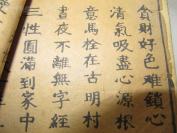 貪財好色難鎖心
清氣吸盡心源根
意馬栓在古明村
晝夜不離無字經
三性圓滿到家中